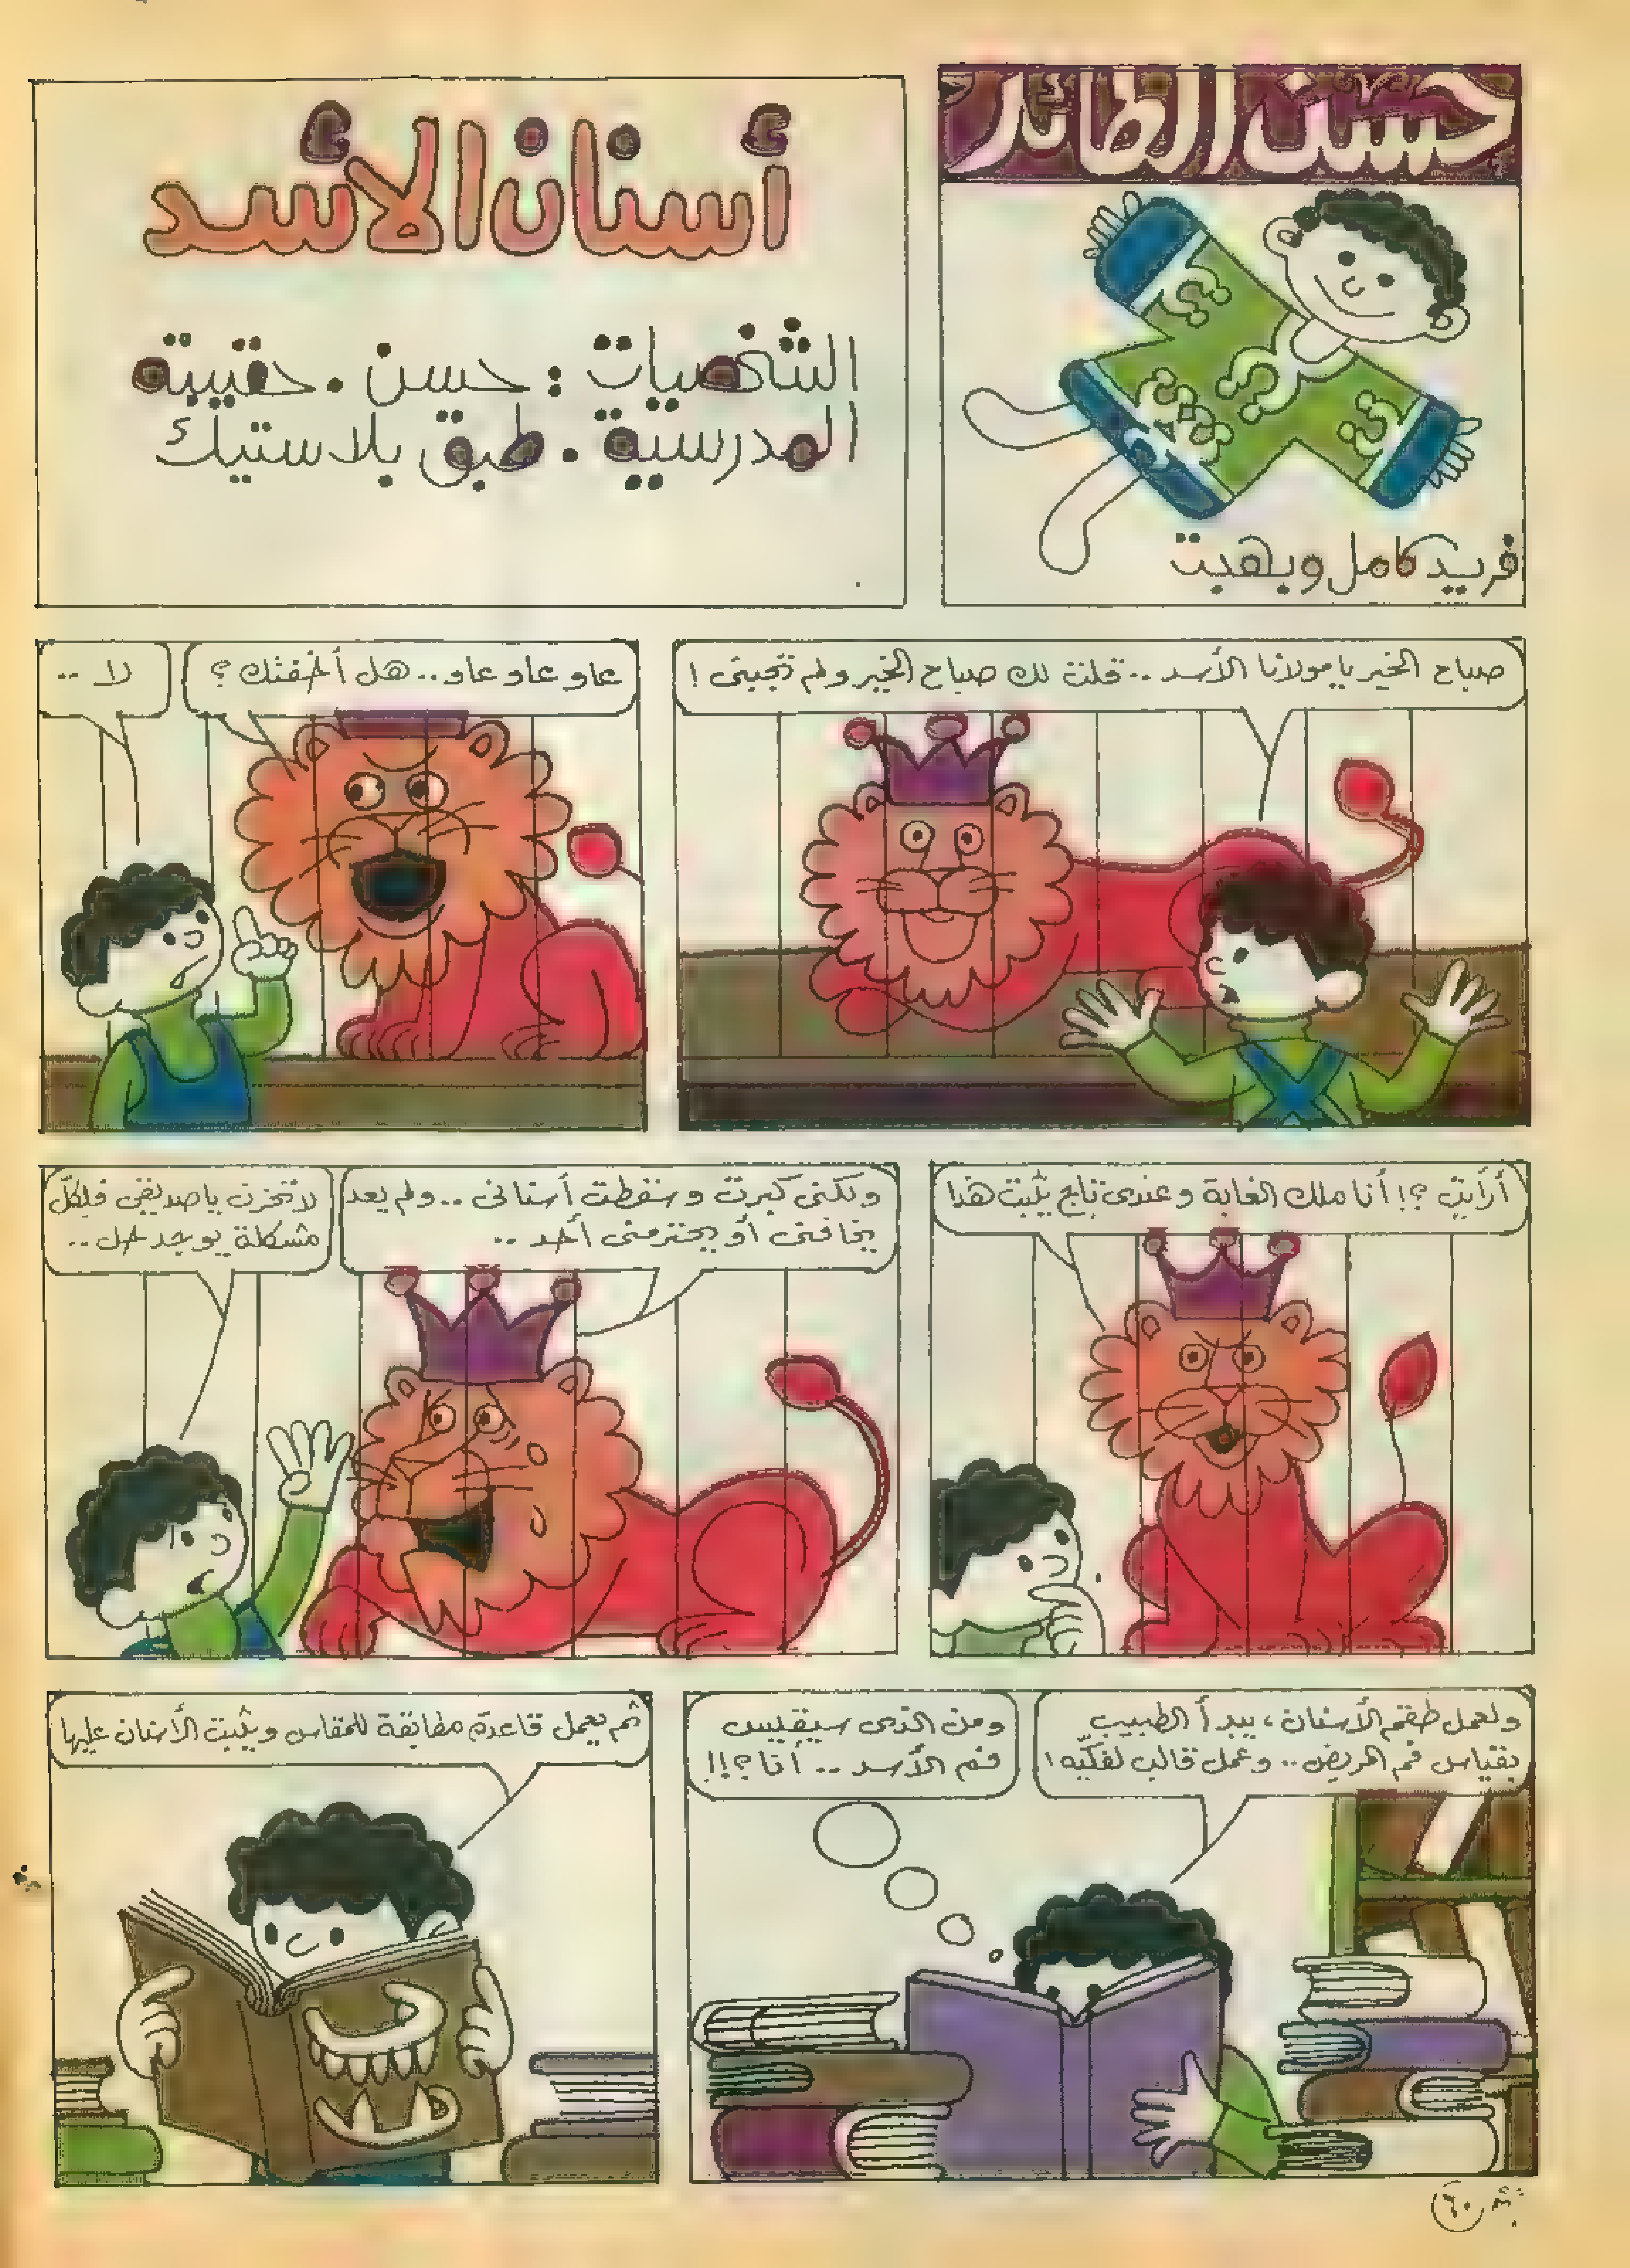 حسن الطائر
فريد كامل وبهجت
أسنان الأسد
الشخصيات : حسن . حقيبته
المدرسية . طبق بلاستيك
صباح الخير يا مولانا الأسد .. قلت لك صباح الخير ولم تجبنى !
عاو عاو عاو .. هل أخفتك ؟
لا ..
أرأيت ؟! أنا ملك الغابة وعندى تاج يثبت هذا
ولكنى كبرت وسقطت أسنانى .. ولم يعد
يخافنى أو يحترمنى أحد ..
لا تحزن يا صديقى فلكلّ
مشكلة يوجد حل ..
ولعمل طقم الأسنان ، يبدأ الطبيب
بقياس فم المريض .. وعمل قالب لفكّيه !
ومن الذى سيقيس
فم الأسد .. أنا ؟!!
ثم يعمل قاعدة مطابقة للمقاس ويثبت الأسنان عليها
٦٠